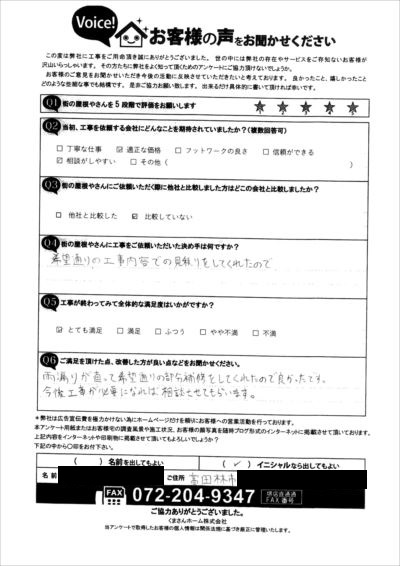 Voice!
お客様の声をお聞かせください
この度は弊社に工事をご用命頂き誠にありがとうございました。世の中には弊社の存在やサービスをご存知ないお客様が
沢山いらっしゃいます。その方たちに弊社をよく知って頂くためのアンケートにご協力頂けないでしょうか。
お客様のご意見をお聞かせいただき今後の活動に反映させていただきたいと考えております。良かったこと、嬉しかったこと
どのような些細な事でも結構です。是非ご協力お願い致します。出来るだけ具体的に書いて頂ければ幸いです。
Q1 街の屋根やさんを5段階で評価をお願いします ★ ★ ★ ★ ★
Q2 当初、工事を依頼する会社にどんなことを期待されていましたか?(複数回答可)
□ 丁寧な仕事 ☑ 適正な価格 □ フットワークの良さ □ 信頼ができる
☑ 相談がしやすい □ その他( )
Q3 街の屋根やさんにご依頼いただく際に他社と比較しました方はどこの会社と比較しましたか?
□ 他社と比較した ☑ 比較していない
Q4 街の屋根やさんに工事をご依頼いただいた決め手は何ですか?
希望通りの工事内容での見積りをしてくれたので
Q5 工事が終わってみて全体的な満足度はいかがですか?
☑ とても満足 □ 満足 □ ふつう □ やや不満 □ 不満
Q6 ご満足を頂けた点、改善した方が良い点などをお聞かせください。
雨漏りが直って希望通りの部分補修をしてくれたので良かったです。
今後工事が必要になれば相談させてもらいます。
*弊社は広告宣伝費を極力かけない為にホームページだけを頼りにお客様への営業活動を行っております。
本アンケート用紙またはお客様宅の調査風景や施工状況、お客様の顔写真を随時ブログ形式のインターネットに掲載させて頂いております。
上記内容をインターネットや印刷物に掲載させて頂いてもよろしいでしょうか?
下記の中から○印をお付け下さい。
( ) 名前を出してもよい ( ✓ ) イニシャルなら出してもよい
名前 ご住所 富田林市
FAX 072-204-9347 堺店直通
FAX番号
ご協力ありがとうございました。
くまさんホーム株式会社
当アンケートで取得したお客様の個人情報は関係法規に基づき厳正に管理いたします。